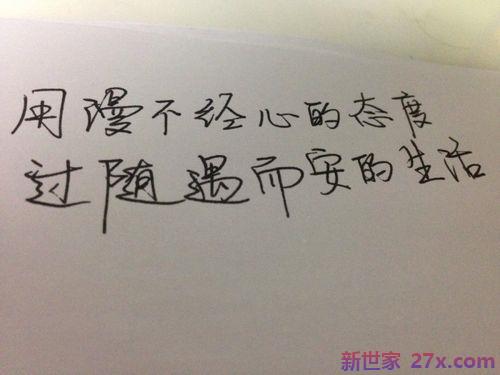 用漫不经心的态度
过随遇而安的生活
新世家 27x.com